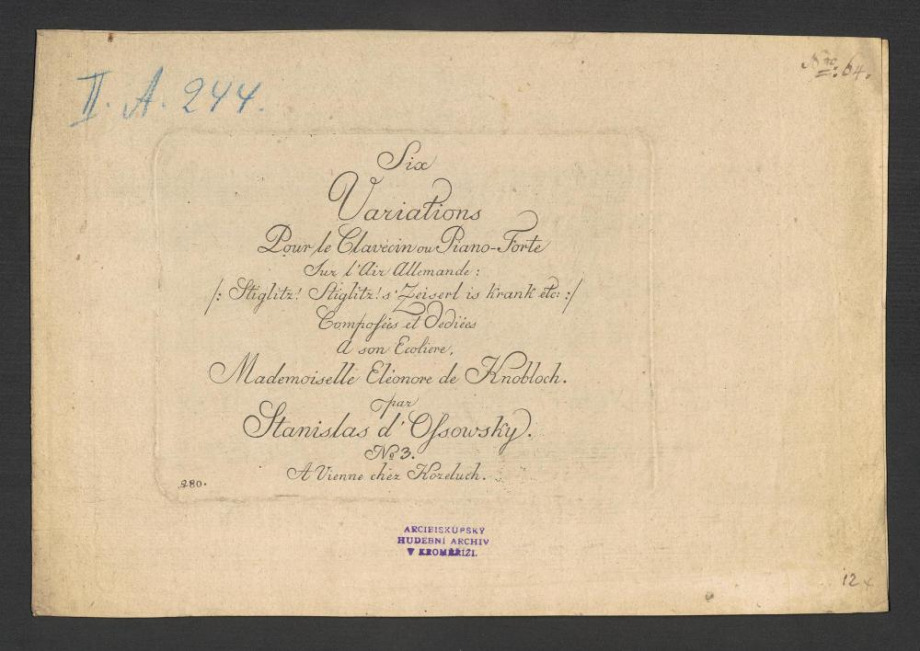 II. A. 244.
Nro: 64.
Six
Variations
Pour le Clavecin ou Piano-Forte
Sur l'Air Allemande:
/: Stiglitz! Stiglitz! s'Zeiserl is krank etc: :/
Composées et Dediées
a son Ecoliere,
Mademoiselle Eléonore de Knobloch.
par
Stanislas d'Ossowsky.
No 3.
A Vienne chéz Kozeluch.
280.
ARCIBISKUPSKÝ
HUDEBNÍ ARCHIV
V KROMĚŘÍŽI.
12